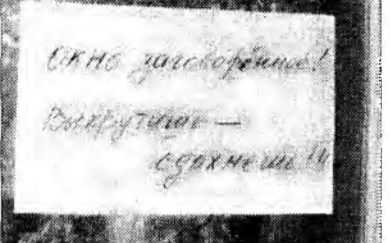 Окно заговорённое!
Выкрутишь —
сдохнешь!!!